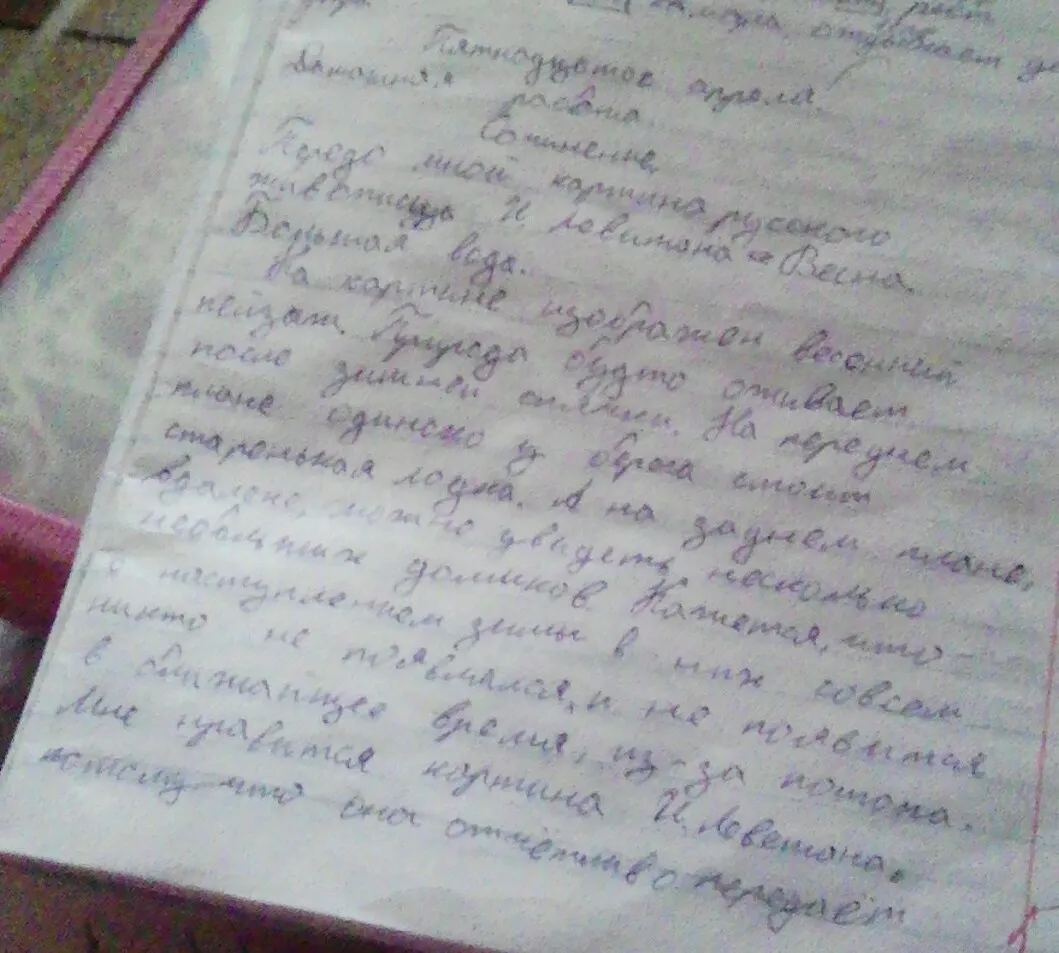 отдыхает
Пятнадцатое апреля.
Домашняя работа.
Сочинение.
Передо мной картина русского
живописца И. Левитана "Весна.
Большая вода.
На картине изображен весенний
пейзаж. Природа будто оживает
после зимней спячки. На переднем
плане одиноко у берега стоит
старенькая лодка. А на заднем плане,
вдалеке, можно увидеть несколько
небольших домиков. Кажется, что
с наступлением зимы в них совсем
никто не появлялся, и не появится
в ближайшее время, из-за потопа.
Мне нравится картина И. Леветана,
потому что она отчётливо передаёт